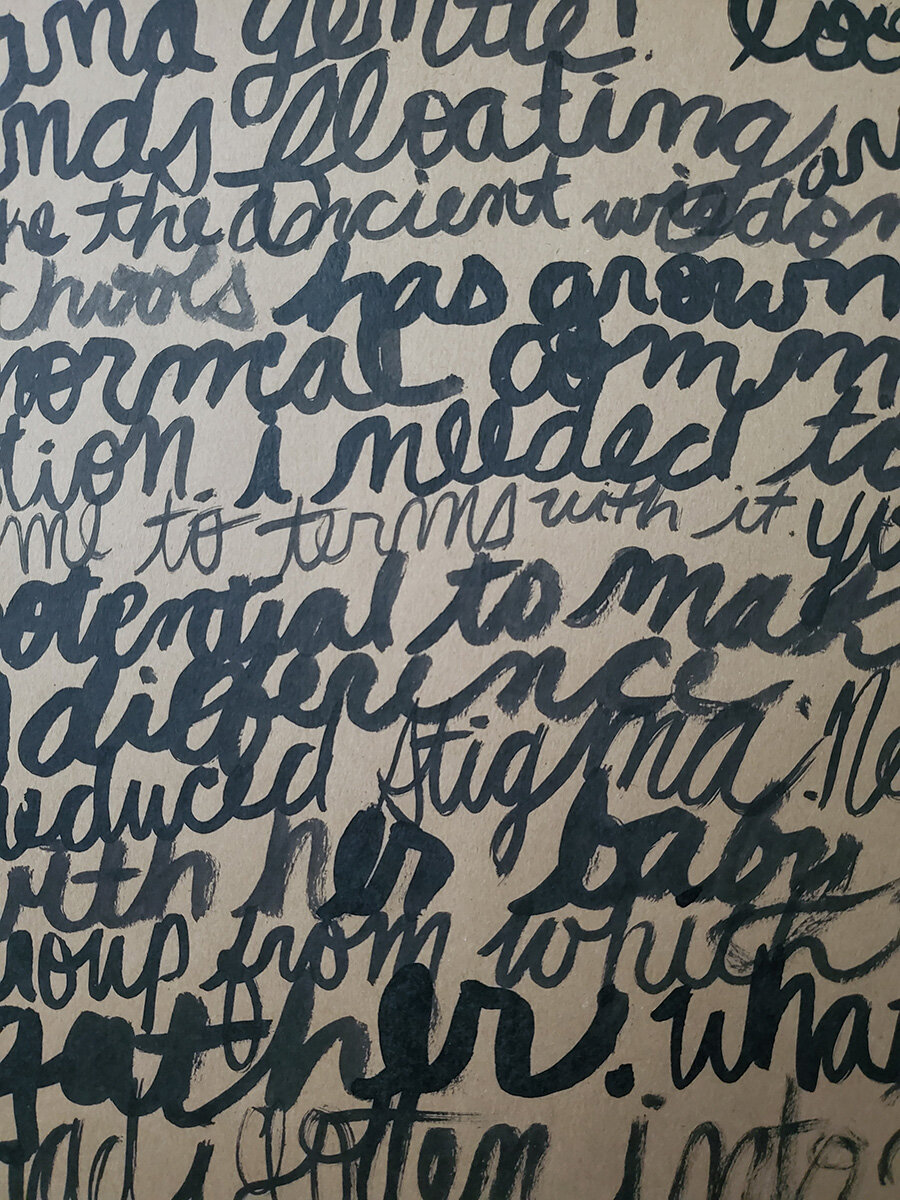 and gentle! loo
nds floating, ar
ke the ancient wisdom
chools has grown
normal comm
tion i needed to
me to terms with it. yo
otential to mak
difference.
reduced stigma. Ne
with her baby
roup from which
gather. wha
had i gotten into